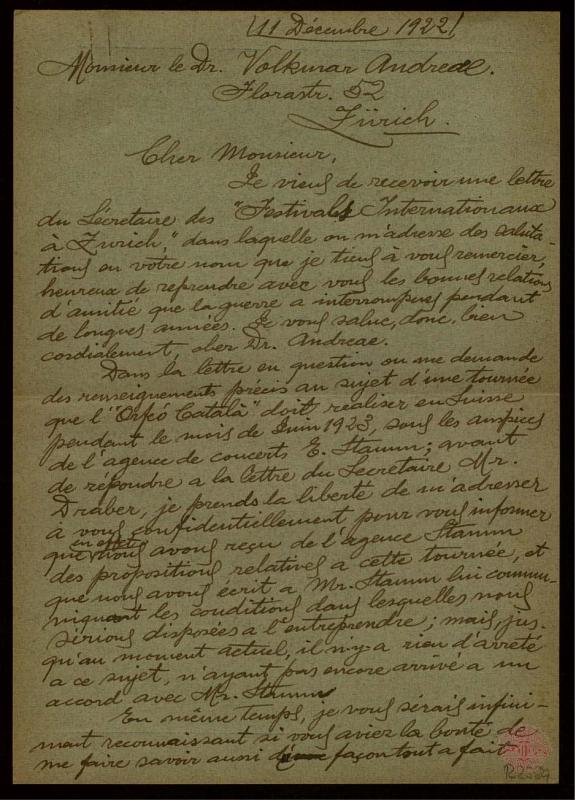 (11 Décembre 1922)
Monsieur le Dr. Volkmar Andreae.
Florastr. 52
Zürich.
Cher Monsieur,
Je viens de recevoir une lettre
du Sécretaire des "Festivals Internationaux
à Zurich," dans laquelle on m'adresse des saluta-
tions en votre nom que je tiens à vous remercier,
heureux de reprendre avec vous les bonnes relations
d'amitié que la guerre a interrompues pendant
de longues années. Je vous salue, donc, bien
cordialement, cher Dr. Andreae.
Dans la lettre en question on me demande
des renseignements précis au sujet d'une tournée
que l'"Orfeó Català" doit réaliser en Suisse
pendant le mois de Juin 1923, sous les auspices
de l'agence de concerts E. Stamm; avant
de répondre a la lettre du Sécretaire Mr.
Draber, je prends la liberté de m'adresser
à vous confidentiellement pour vous informer
que en effet nous avons reçu de l'agence Stamm
des propositions relatives a cette tournée, et
que nous avons écrit a Mr. Stamm lui commu-
niquant les conditions dans lesquelles nous
sérions disposées a l'entreprendre; mais, jus-
qu'au moment actuel, il n'y a rien d'arreté
a ce sujet, n'ayant pas encore arrivé a un
accord avec Mr. Stamm.
En même temps, je vous sérais infini-
ment reconnaissant si vous aviez la bonté de
me faire savoir aussi façon tout a fait